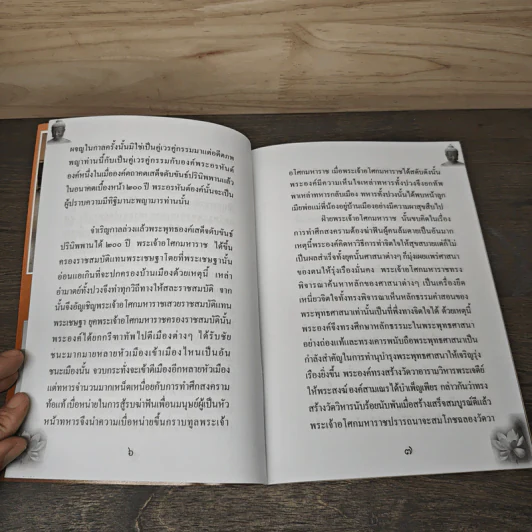 ผจญในกาลครั้งนั้นมิใช่เป็นคู่เวรคู่กรรมมาแต่อดีตภพ
พญาท่านนี้กับเป็นคู่เวรคู่กรรมกับองค์พระอรหันต์
องค์หนึ่งในเมื่อองค์ตถาคตเสด็จดับขันธ์ปรินิพพานแล้ว
ในอนาคตเบื้องหน้า ๒๐๐ ปี พระอรหันต์องค์นั้นจะเป็น
ผู้ปราบความมีทิฐิมานะพญามารท่านนั้น
จำเริญกาลล่วงแล้วพระพุทธองค์เสด็จดับขันธ์
ปรินิพพานได้ ๒๐๐ ปี พระเจ้าอโศกมหาราช ได้ขึ้น
ครองราชสมบัติแทนพระเชษฐาโดยที่พระเชษฐานั้น
อ่อนแอเกินที่จะปกครองบ้านเมืองด้วยเหตุนี้ เหล่า
อำมาตย์ทั้งปวงจึงทำทุกวิถีทางให้สละราชสมบัติ จาก
นั้นจึงอัญเชิญพระเจ้าอโศกมหาราชเสวยราชสมบัติแทน
พระเชษฐา ยุคพระเจ้าอโศกมหาราชครองราชสมบัตินั้น
พระองค์ได้ยกกรีฑาทัพไปตีเมืองต่างๆ ได้รับชัย
ชนะมากมายหลายหัวเมืองเข้าเมืองไหนเป็นอัน
ชนะเมืองนั้น จวบกระทั่งจะเข้าตีเมืองอีกหลายหัวเมือง
แต่ทหารจำนวนมากเหน็ดเหนื่อยกับการทำศึกสงคราม
ท้อแท้ เบื่อหน่ายในการสู้รบฆ่าฟันเพื่อนมนุษย์ผู้เป็นหัว
หน้าทหารจึงนำความเบื่อหน่ายขึ้นกราบทูลพระเจ้า
๖
อโศกมหาราช เมื่อพระเจ้าอโศกมหาราชได้สดับดังนั้น
พระองค์มีความเห็นใจเหล่าทหารทั้งปวงจึงยกทัพ
พาเหล่าทหารกลับเมือง ทหารทั้งปวงนั้นได้พบหน้าลูก
เมียพ่อแม่พี่น้องอยู่บ้านเมืองอย่างมีความผาสุขสืบไป
ฝ่ายพระเจ้าอโศกมหาราช นั้นขบคิดในเรื่อง
การทำศึกสงครามต้องฆ่าฟันผู้คนล้มตายเป็นอันมาก
เหตุนี้พระองค์คิดหาวิธีการทำจิตใจให้สุขสบายแต่ที่ไม่
เป็นผลสำเร็จทั้งยุคนั้นศาสนาต่างๆ ก็มุ่งเผยแพร่ศาสนา
ของตนให้รุ่งเรืองมั่นคง พระเจ้าอโศกมหาราชทรง
พิจารณาค้นหาหลักของศาสนาต่างๆ เป็นเครื่องยึด
เหนี่ยวจิตใจทั้งทรงพิจารณาเห็นหลักธรรมคำสอนของ
พระพุทธศาสนาเท่านั้นเป็นที่พึ่งทางจิตใจได้ ด้วยเหตุนี้
พระองค์จึงทรงศึกษาหลักธรรมในพระพุทธศาสนา
อย่างถ่องแท้และทรงเคารพนับถือพระพุทธศาสนาเป็น
กำลังสำคัญในการทำนุบำรุงพระพุทธศาสนาให้เจริญรุ่ง
เรืองยิ่งขึ้น พระองค์ทรงสร้างวัดวาอารามวิหารพระเจดีย์
ให้พระสงฆ์องค์สามเณรได้บำเพ็ญเพียร กล่าวกันว่าทรง
สร้างวัดวิหารนับร้อยนับพันเมื่อสร้างเสร็จสมบูรณ์ดีแล้ว
พระเจ้าอโศกมหาราชปรารถนาจะสมโภชฉลองวัดวา
๗